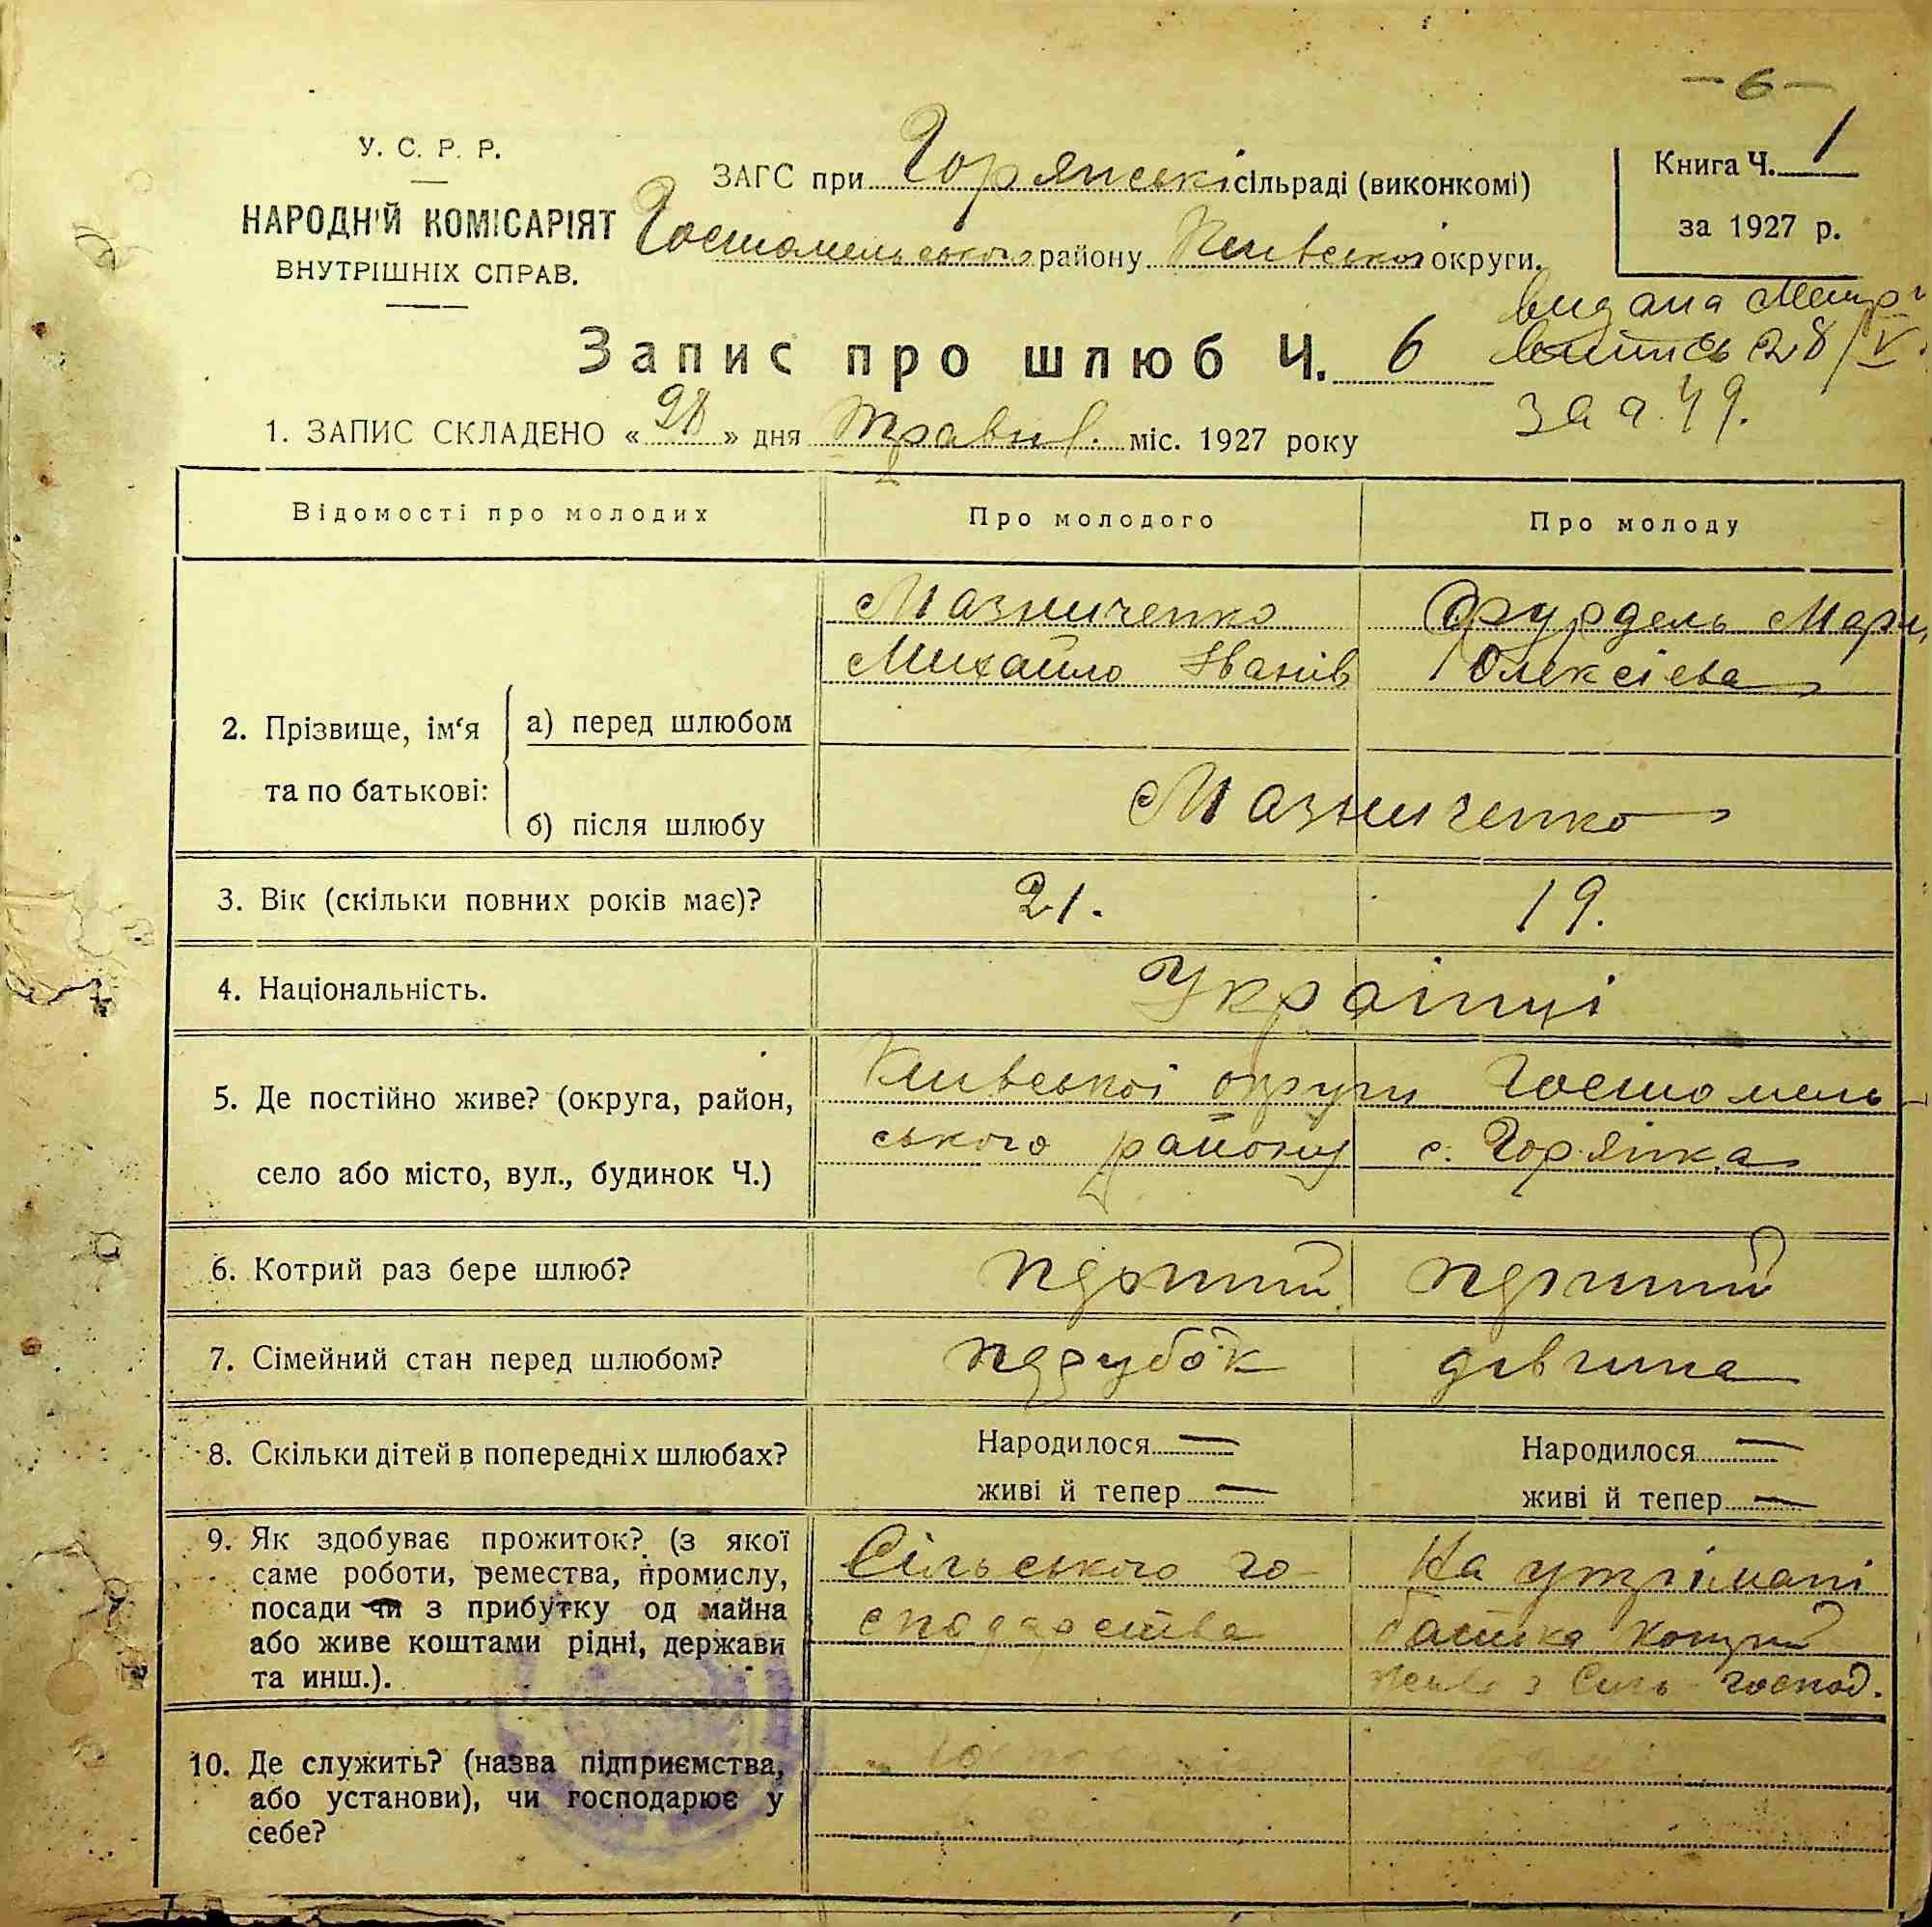 — 6 —
У. С. Р. Р.
НАРОДНІЙ КОМІСАРІЯТ
ВНУТРІШНІХ СПРАВ.
ЗАГС при Горянські сільраді (виконкомі)
Гостомельського району Київської округи.
Книга Ч. 1
за 1927 р.
Запис про шлюб Ч. 6
видана
28/V
за ч. 49.
1. ЗАПИС СКЛАДЕНО « 28 » дня Травня міс. 1927 року
Відомості про молодих
Про молодого
Про молоду
2. Прізвище, ім‘я та по батькові:
а) перед шлюбом
Мазниченко
Михайло Іванів
Олексієва
б) після шлюбу
Мазниченко
3. Вік (скільки повних років має)?
21.
19.
4. Національність.
Українці
5. Де постійно живе? (округа, район,
село або місто, вул., будинок Ч.)
Київської округи Гостомель
ського району с. Горянка
6. Котрий раз бере шлюб?
перший
перший
7. Сімейний стан перед шлюбом?
парубок
дівчина
8. Скільки дітей в попередніх шлюбах?
Народилося —
живі й тепер —
Народилося —
живі й тепер —
9. Як здобуває прожиток? (з якої
саме роботи, ремества, промислу,
посади чи з прибутку од майна
або живе коштами рідні, держави
та инш.).
Сільського го
сподарства
На утрімані
батька котрий
живе з Сіль господ.
10. Де служить? (назва підприємства,
або установи), чи господарює у
себе?